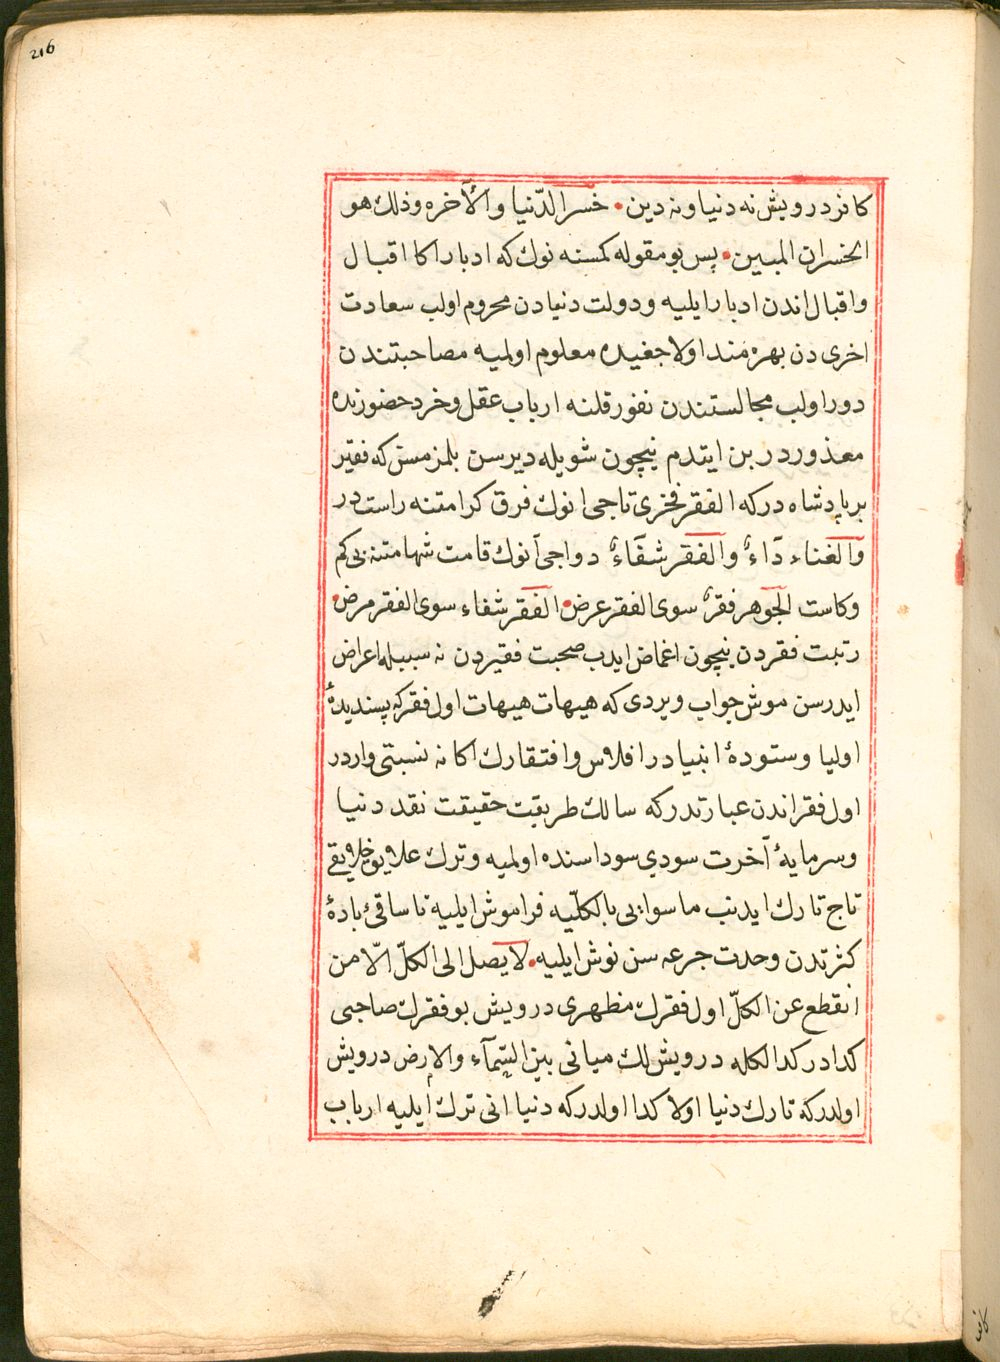 216
كافر درويش نه دنيا ونه دين • خسر الدّنيا والآخره وذلك هو
الخسران المبين • پس بو مقوله كمسنه نوك كه ادبار اكا اقبال
واقبال اندن ادبار ايليه ودولت دنيادن محروم اولب سعادت
اخرى دن بهره مند اولاجغيده معلوم اولميه مصاحبتندن
دور اولب مجالستندن نفور قلنه ارباب عقل وخرد حضورنده
معذوردر بن ايتدم نيچون شويله ديرسن بلمز مسن كه فقير
بر پادشاه دركه الفقر فخرى تاجى انوك فرق كرامتنه راست در
والغناء دآءٌ والفقر شفآءٌ دواجى آنوك قامت شهامتنه بى كم
وكاست الجوهر فقرٌ سوى الفقر عرض • الفقر شفاء سوى الفقر مرض •
رتبت فقردن نيچون اغماض ايدب صحبت فقيردن نه سببله اعراض
ايدرسن موش جواب ويردى كه هيهات هيهات اول فقر كه پسنديدهٔ
اوليا وستودهٔ انبيادر افلاس وافتقارك اكا نه نسبتى واردر
اول فقر اندن عبارتدركه سالك طريقت حقيقت نقد دنيا
وسرمايهٔ آخرت سودي سوداسنده اولميه وترك علايق وخلايقى
تاج تارك ايدنب ماسوايى بالكلّيه فراموش ايليه تا ساقئ بادهٔ
كثرتدن وحدت جرعه سن نوش ايليه • لا يصل الى الكلّ الّا من
انقطع عن الكلّ اول فقرك مظهرى درويش بو فقرك صاحبى
كدادر كدالكله درويش لك ميانى بين السّمآء والارض درويش
اولدركه تارك دنيا اولا كدا اولدركه دنيا انى ترك ايليه ارباب